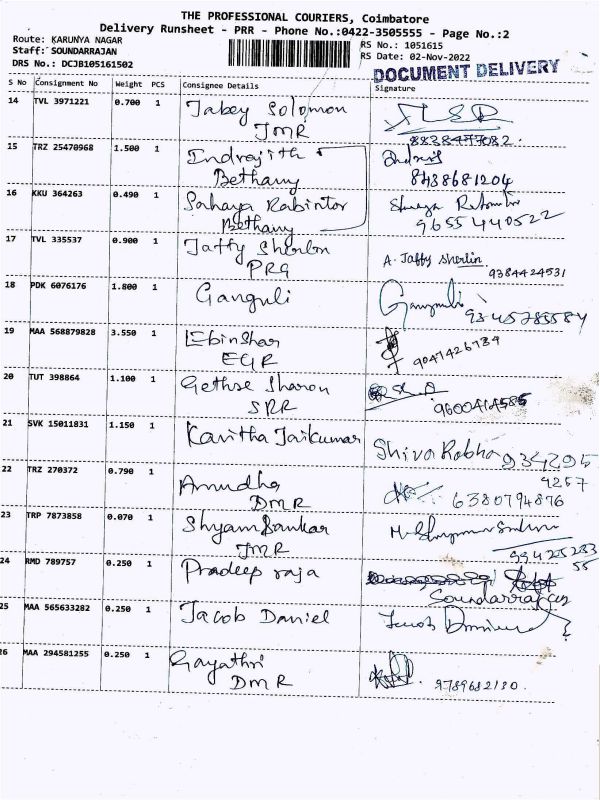 THE PROFESSIONAL COURIERS, Coimbatore
Delivery Runsheet - PRR - Phone No.:0422-3505555 - Page No.:2
Route: KARUNYA NAGAR
Staff: SOUNDARRAJAN
DRS No.: DCJB105161502
RS No.: 1051615
RS Date: 02-Nov-2022
DOCUMENT DELIVERY
S No Consignment No Weight PCS Consignee Details Signature
14 TVL 3971221 0.700 1 Jabey Solomon
JMR
8838477082.
15 TRZ 25470968 1.500 1 Indrajith
Bethany 8438681204
16 KKU 364263 0.490 1 Sahaya Rabintor
Bethany 9655440522
17 TVL 335537 0.900 1 Jaffy Sherlin A. Jaffy Sherlin
PRG 9384424531
18 PDK 6076176 1.800 1 Ganguli Ganguli
9345785584
19 MAA 568879828 3.550 1 Ebinshar
EGR 9047426739
20 TUT 398864 1.100 1 Gethse Sharon
SRR 9600414585
21 SVK 15011831 1.150 1 Kavitha Jaikumar Shiva Rabha 934295
4257
22 TRZ 270372 0.790 1 Anudha
DMR 6380794876
23 TRP 7873858 0.070 1 Shyam Sankar
JMR 9942528333
55
24 RMD 789757 0.250 1 Pradeep raja
Soundarrajan
25 MAA 565633282 0.250 1 Jacob Daniel
26 MAA 294581255 0.250 1 Gayathri
DMR 9789682130.